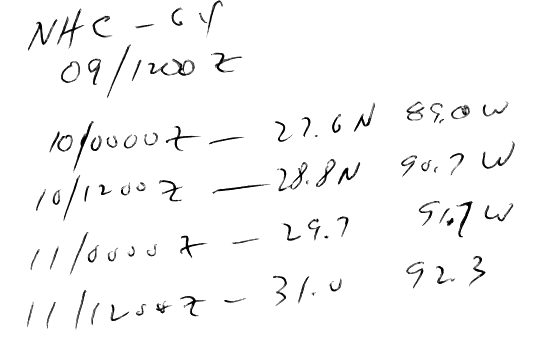 NHC - GY
09/1200 Z
10/0000 Z — 27.6 N 89.0 W
10/1200 Z — 28.8 N 90.7 W
11/0000 Z — 29.7 91.7 W
11/1200 Z — 31.0 92.3